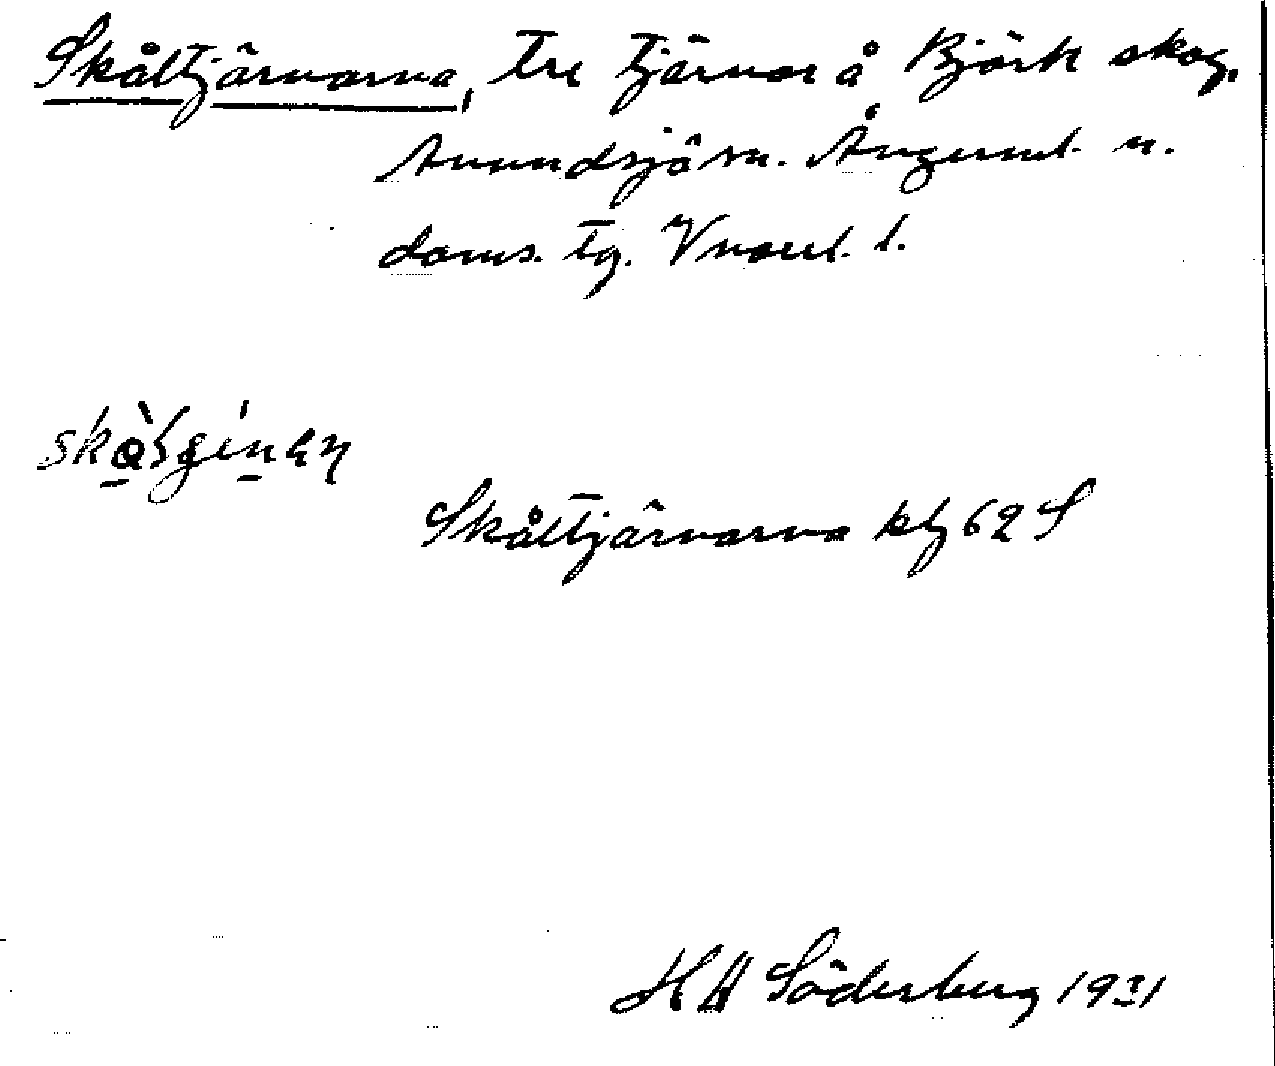 Skåltjärnarna, tre tjärnar å Björk skog,
Anundsjö sn. Ångerml. n.
doms. tg. Vnorrl. l.
Skåltjärnarna kbl 62 S
H H Söderberg 1931